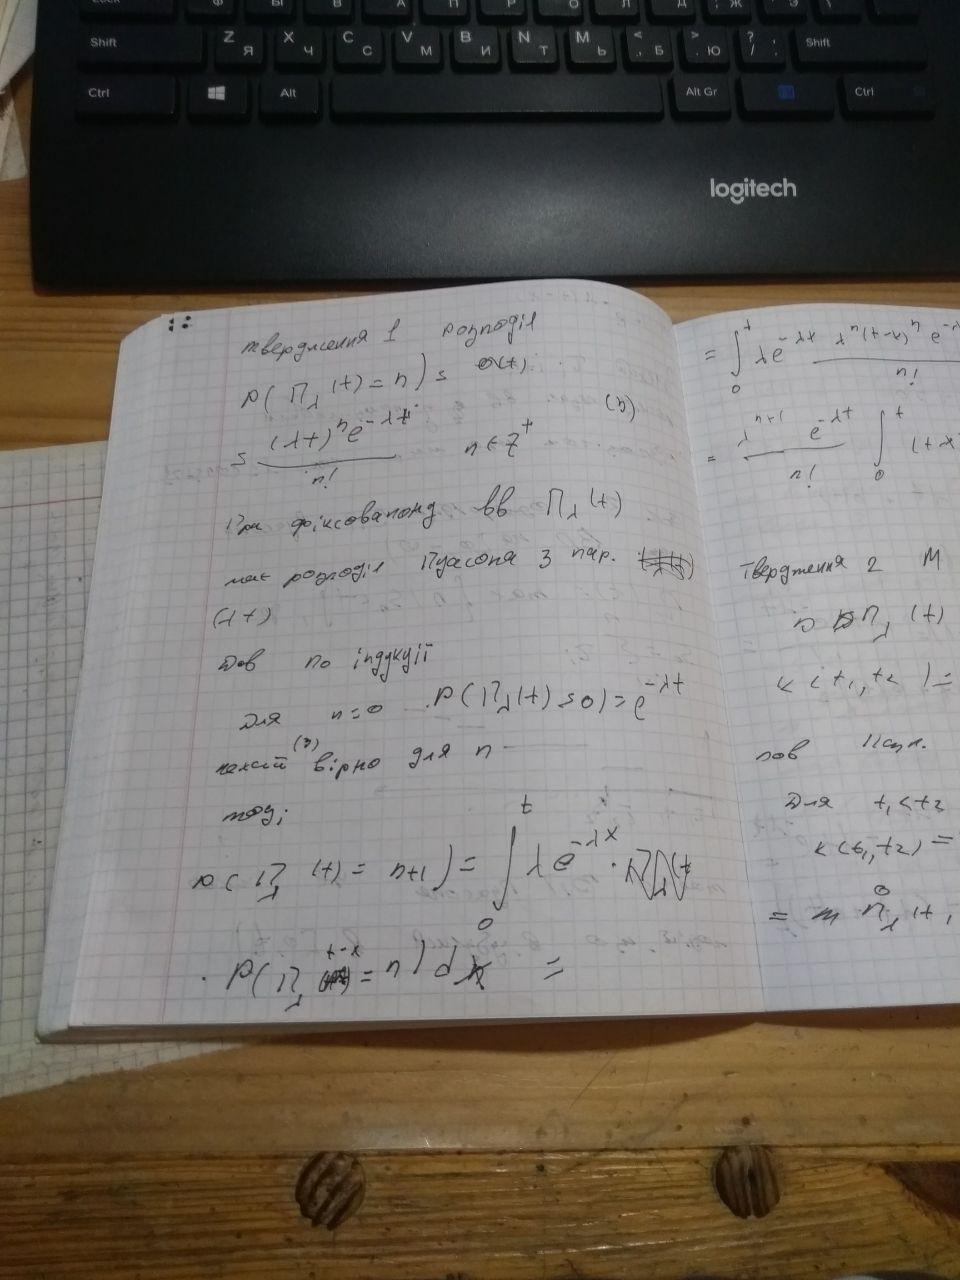 Shift Z Я X Ч C С V М B И N Т M Ь < , Б > . Ю ? / . , Shift
Ctrl Alt Alt Gr Ctrl
logitech
твердження 1 розподіл
P(Π_λ(t) = n) =
= (λt)^n e^{-λt} / n! n ∈ Z^+ (4)
При фіксованому вв Π_λ(t)
має розподіл Пуасона з пар.
(λt)
Дов по індукції
Для n=0 P(Π_λ(t)=0)=e^{-λt}
нехай (3) вірно для n
тоді
P(Π_λ(t) = n+1) = ∫_0^t λe^{-λx} ·
· P(Π_λ t-x = n) dx =
= ∫_0^t λe^{-λx} λ^n(t-x)^n e^{-λ / n!
= λ^{n+1} e^{-λt} / n! ∫_0^t (t-x
Твердження 2 М
Π_λ(t)
K(t_1,t_2) =
Для t_1<t_2
K(t_1,t_2) =
= m Π_λ(t_1